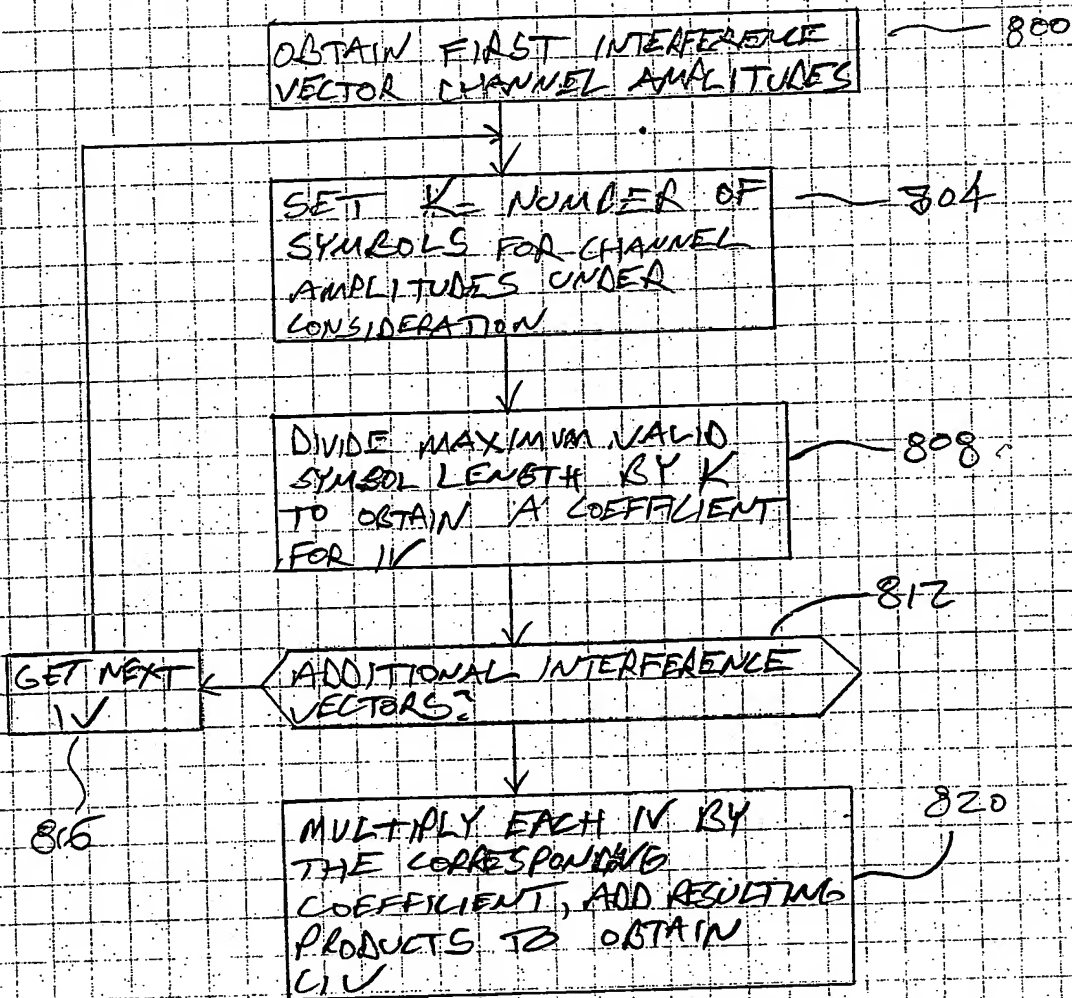 OBTAIN FIRST INTERFERENCE
VECTOR CHANNEL AMPLITUDES
800
SET K= NUMBER OF
SYMBOLS FOR CHANNEL
AMPLITUDES UNDER
CONSIDERATION
804
DIVIDE MAXIMUM VALID
SYMBOL LENGTH BY K
TO OBTAIN A COEFFICIENT
FOR IV
808
812
GET NEXT
IV
816
ADDITIONAL INTERFERENCE
VECTORS?
MULTIPLY EACH IV BY
THE CORRESPONDING
COEFFICIENT, ADD RESULTING
PRODUCTS TO OBTAIN
CIV
820